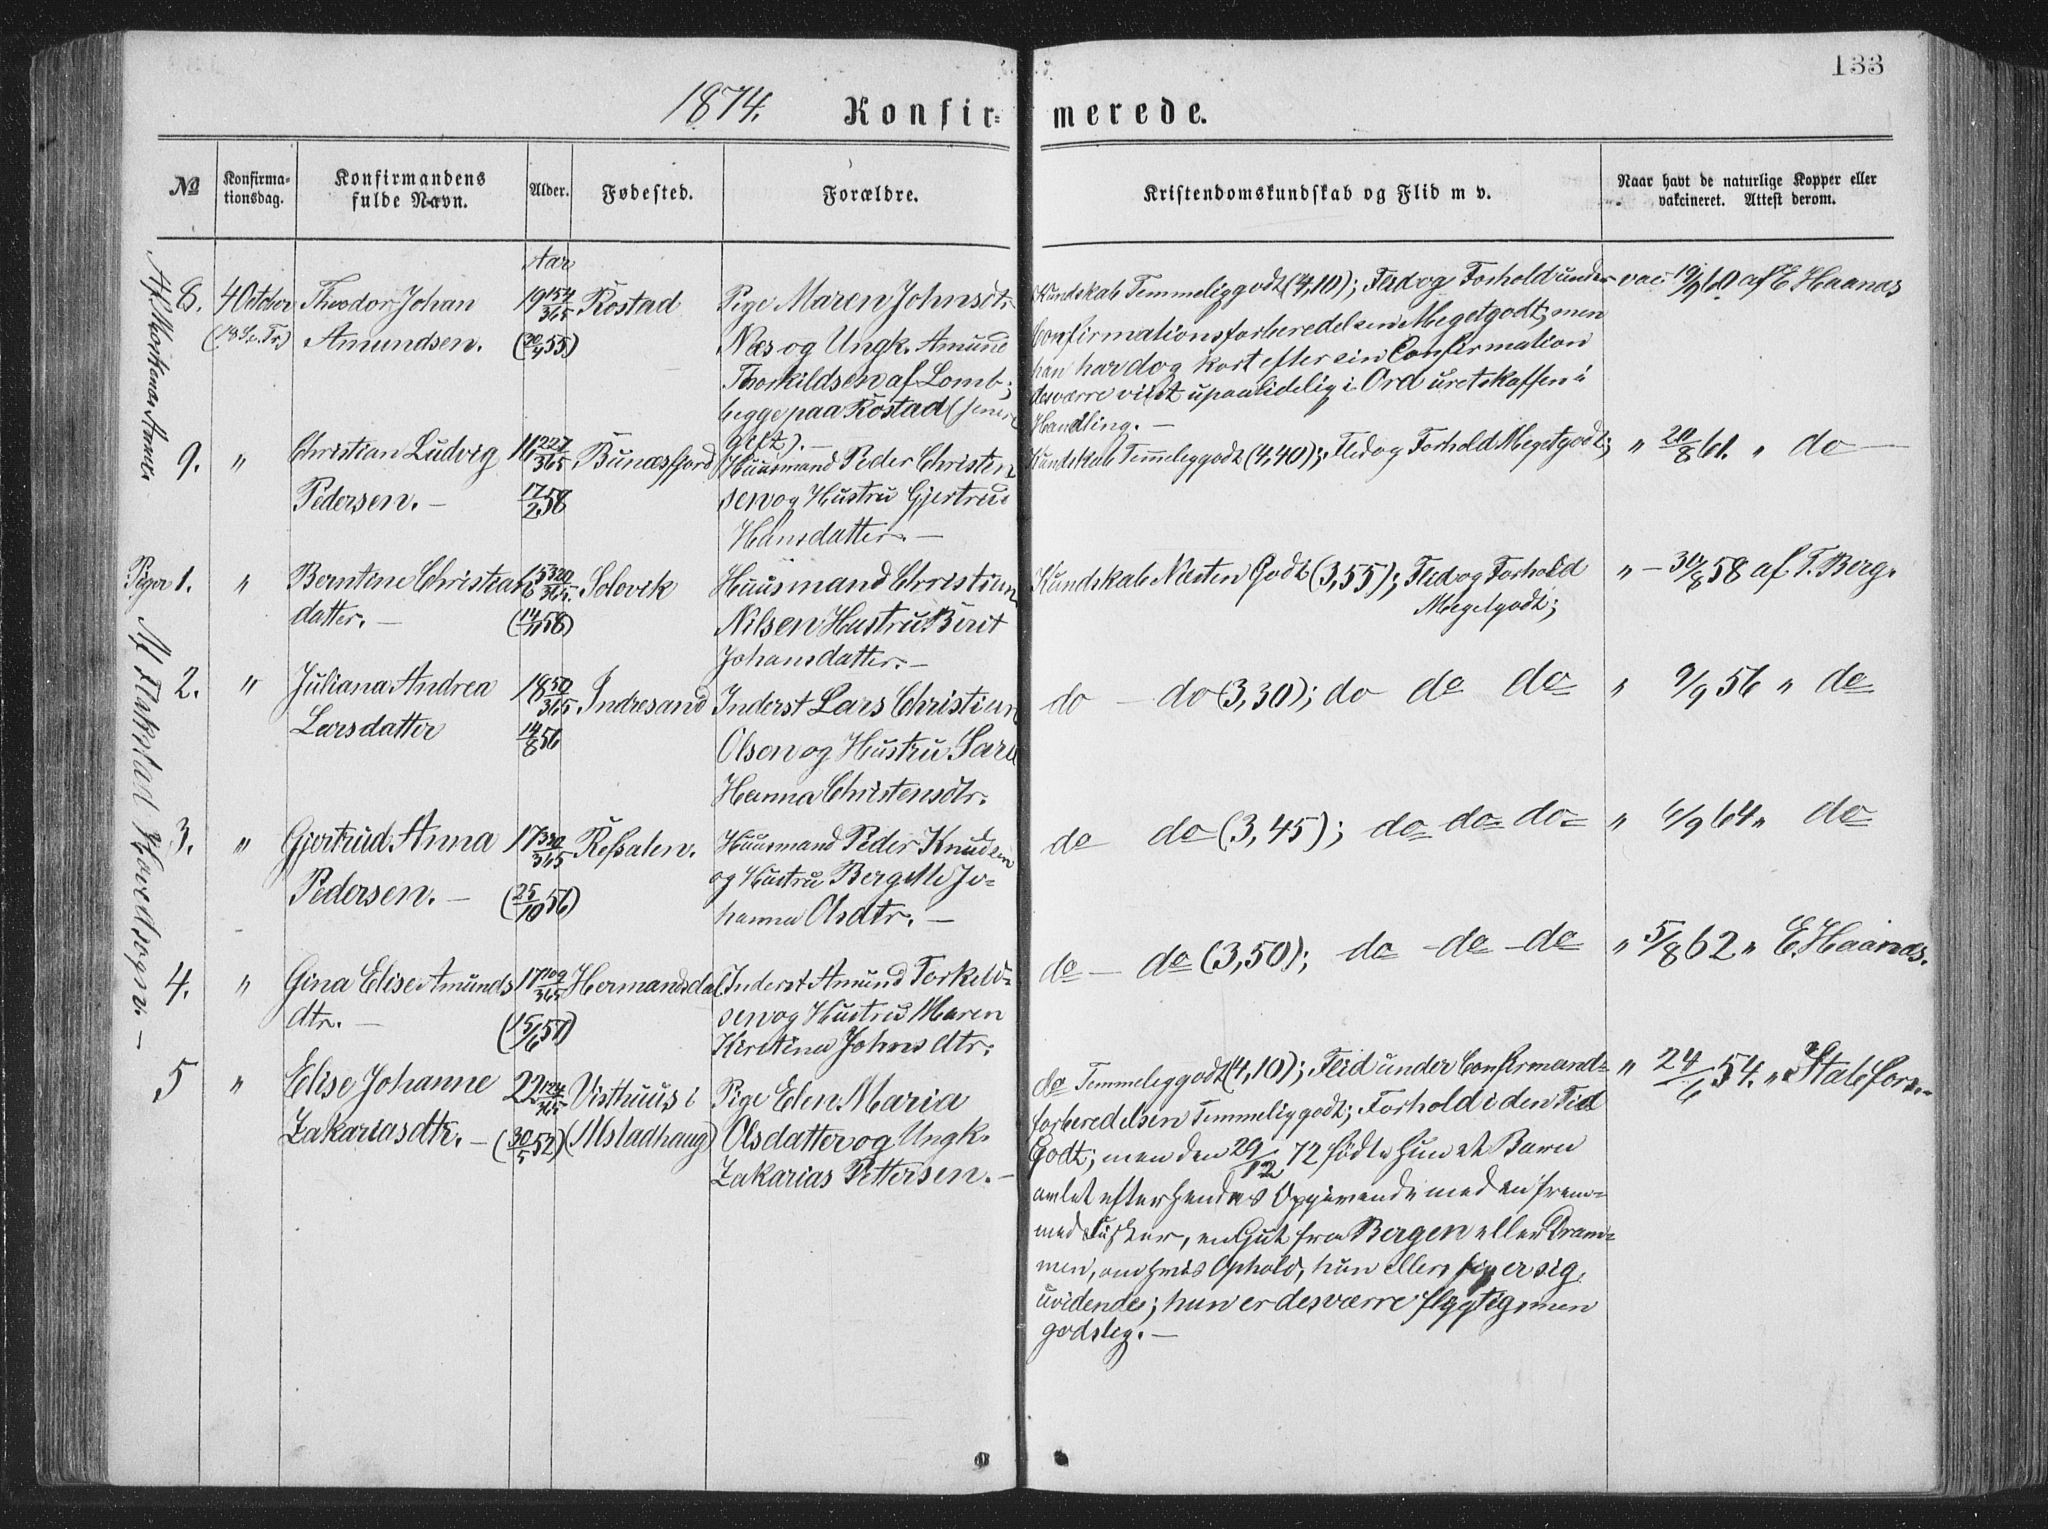 133
1874. Konfir- merede.
№ Konfirma-tionsdag. Konfirmandens fulde Navn. Alder. Fødested. Forældre. Kristendomskundskab og Flid m v. Naar havt de naturlige Kopper eller vakcineret. Attest derom.
Aar
8. 4 October Theodor Johan 19 154/365 Rostad Pige Maren Johnsdtr. Kundskab Temmeliggodt (4,10); Flid og Forhold under vac. 19/9 60 af E Haanæs
(18 S. e. Tr.) Amundsen. (30/4 55) Næs og Ungk. Amund Confirmationsforberedelsen Megetgodt; men
Thorkildsen af Lomb; han har dog kort efter sin Confirmation
begge paa Rostad (senere desværre viist upaalidelig i Ord uretskaffen i
gift). — Handling. —
9. " Christian Ludvig 16 227/365 Bunæsfjord Huusmand Peder Christen Kundskab Temmeliggodt (4,40); Flid og Forhold Megetgodt; " 20/8 61. " do —
Pedersen. — 17/2 58 sen og Hustru Gjertrud
Hansdatter. —
Piger 1. " Berntine Christian 15 320/365. Solovik Huusmand Christian Kundskab Næsten Godt (3,55); Flid og Forhold " — 30/8 58 af T. Berg.
datter. — (14/11 58) Nilsen Hustru Berit Megetgodt;
Johansdatter. —
2. " Juliana Andrea 18 50/365 Indresand Inderst Lars Christian do — do (3,30); do do do " 9/9 56 " do
Larsdatter 14/8 56 Olsen og Hustru Sara
Hanna Christensdtr.
3. " Gjertrud Anna 17 330/365 Refsalen. Huusmand Peder Knudsen do do (3,45); do do do " 6/9 64 " do
Pedersen. — (25/10 56) og Hustru Bergitte Jo-
hanna Olsdtr. —
4. " Gina Elise Amunds 17 109/365 Hermandsdal Inderst Amund Torkild- do — do (3,50); do do do " 5/8 62 " E. Haanæs.
dtr. — (15/6 57) sen og Hustru Maren
Kirstina Johnsdtr.
5 " Elise Johanne 22 124/365 Visthuus i Pige Elen Maria do Temmeliggodt (4,10); Flid under Confirmand- " 24/6 54. " Stabsfors..
Zakariasdtr. — (30/5 52) (Alstadhaug) Olsdatter og Ungk. forberedelsen Temmeliggodt; Forhold i den Tid
Zakarias Pettersen. — Godt; men den 29/12 72 fødte hun et Barn
avlet efter hendes Opgivende med en frem-
med Fisker, en Gut fra Bergen eller Dram-
men, om hvis Ophold, hun ellers siger sig
uvidende; hun er desværre flygtig men
godslig. —
Af Moskenes Annex
Af Flakstad Hovedsogn. —